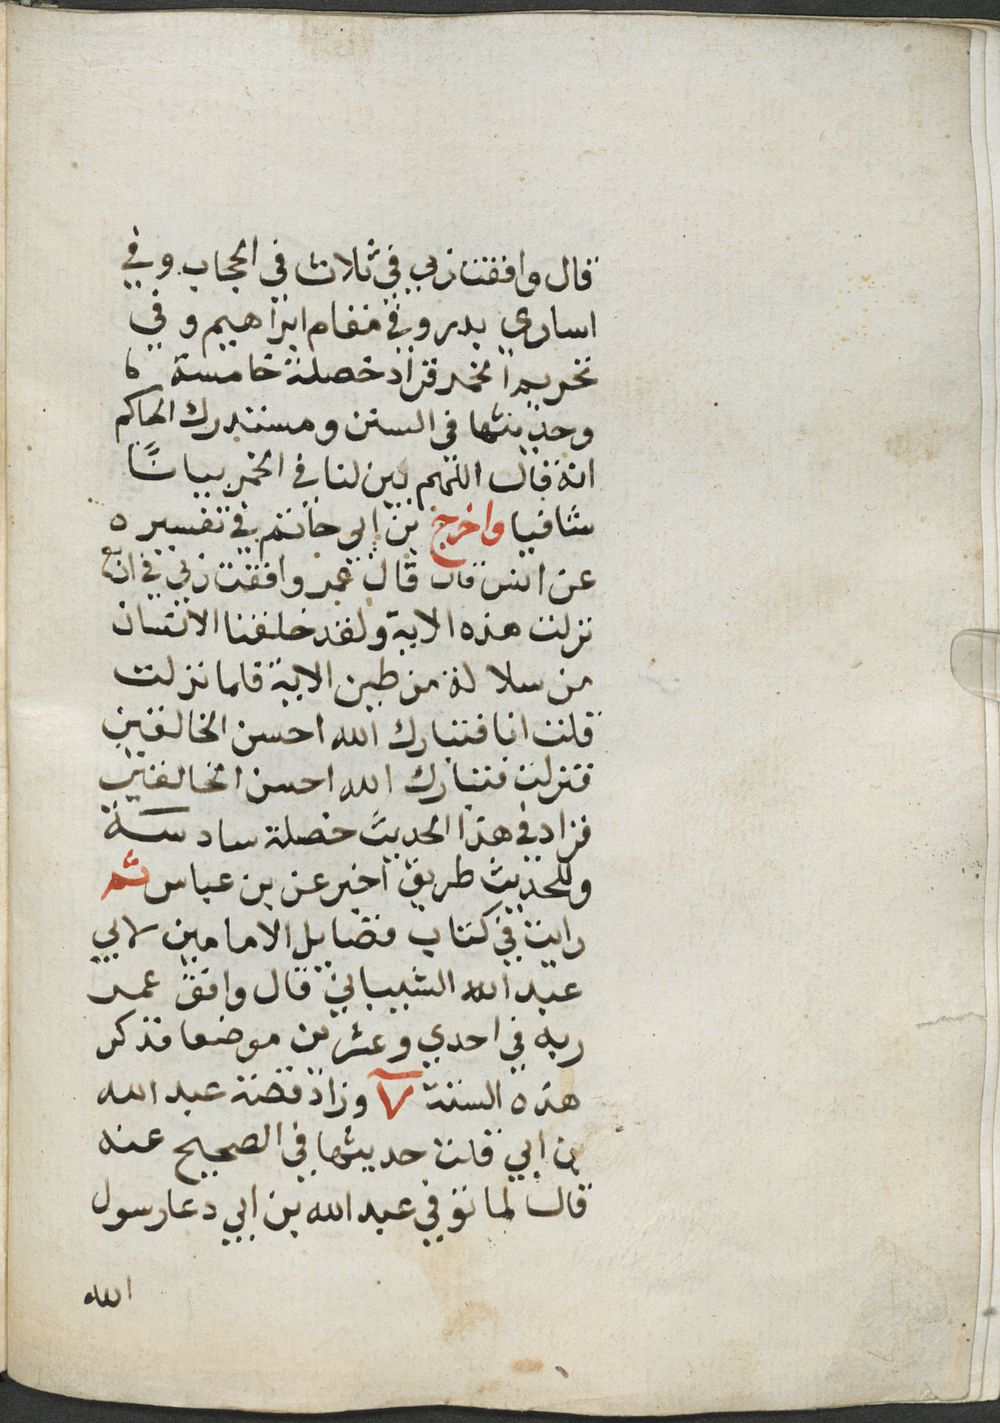 قال وافقت ربي في ثلاث في الحجاب وفي
اساري بدر وفي مقام ابراهيم وفي
تحريم الخمر فزاد خصلة خامسة
وحديثها في السنن ومستدرك الحاكم
انه قال اللهم بين لنا في الخمر بيانًا
شافيا واخرج بن ابي حاتم في تفسيره
عن انس قال قال عمر وافقت ربي في اربع
نزلت هذه الاية ولقد خلقنا الانسان
من سلالة من طين الاية فلما نزلت
قلت انا فتبارك الله احسن الخالقين
فنزلت فتبارك الله احسن الخالقين
فزاد في هذا الحديث خصلة سادسة
وللحديث طريق اخير عن بن عباس ثم
رايت في كتاب فضايل الامامين لابي
عبد الله الشيباني قال وافق عمر
ربه في احدي وعشرين موضعا فذكر
هذه الستة ٧ وزاد قصة عبد الله
بن ابي قلت حديثها في الصحيح عنه
قال لما توفي عبد الله بن ابي دعا رسول
الله